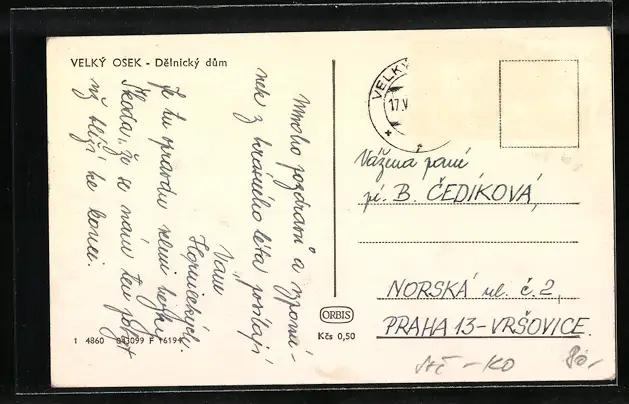 VELKÝ OSEK - Dělnický dům
Mnoho pozdravů a vzpomí-
nek z krásného léta posílají
Vám
Hornických.
Je tu opravdu velmi hezky.
Škoda, že se nám ten pobyt
již blíží ke konci.
1 4860 043099 F 16194
ORBIS
Kčs 0,50
VELKÝ
17.V
Vážená paní
pí. B. ČEDÍKOVÁ,
NORSKÁ ul. č. 2,
PRAHA 13-VRŠOVICE.
StČ-KO
80,-